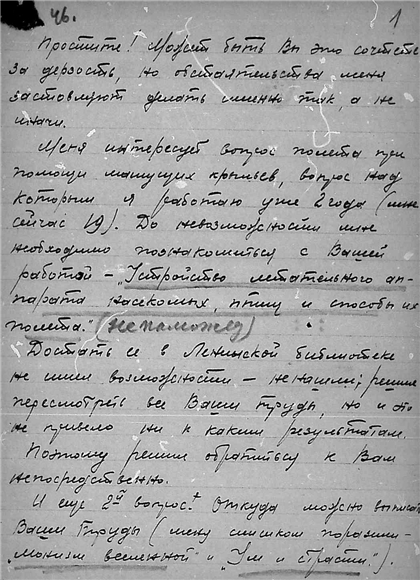 46. 1
Простите! Может быть Вы это сочтете
за дерзость, но обстоятельства меня
заставляют делать именно так, а не
иначи.
Меня интересует вопрос полета при
помощи машущих крыльев, вопрос над
которым я работаю уже 2 года (мне
сейчас 19). До невозможности мне
необходимо познакомиться с Вашей
работой – „Устройство летательного ап-
парата насекомых, птиц и способы их
полета." (непоможед)
Достать ее в Ленинской библиотеке
не имел возможности – ненашли; решил
пересмотреть все Ваши труды, но и это
не привело ни к каким результатам.
Поэтому решил обратиться к Вам
непосредственно.
И еще 2й вопрос: Откуда можно выписать
Ваши труды (меня слишком поразили –
„монизм вселенной" и „Ум и страсти").